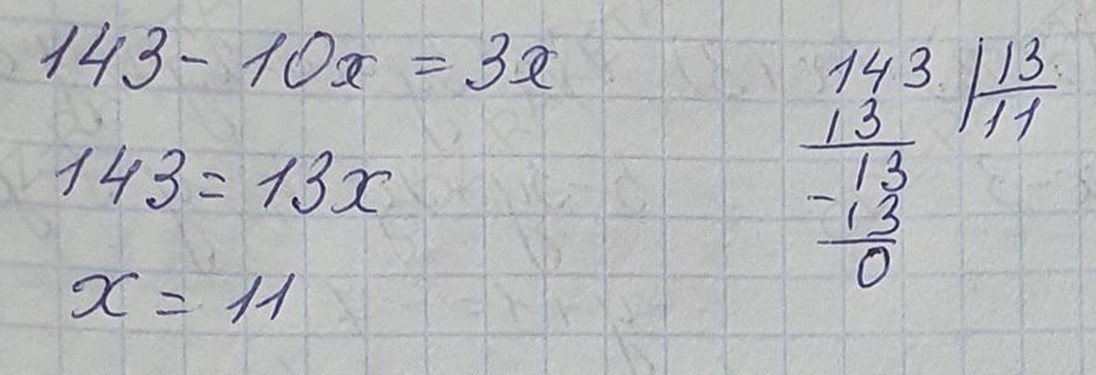 143 - 10x = 3x
143 = 13x
x = 11
143 | 13
13 | 11
13
- 13
0